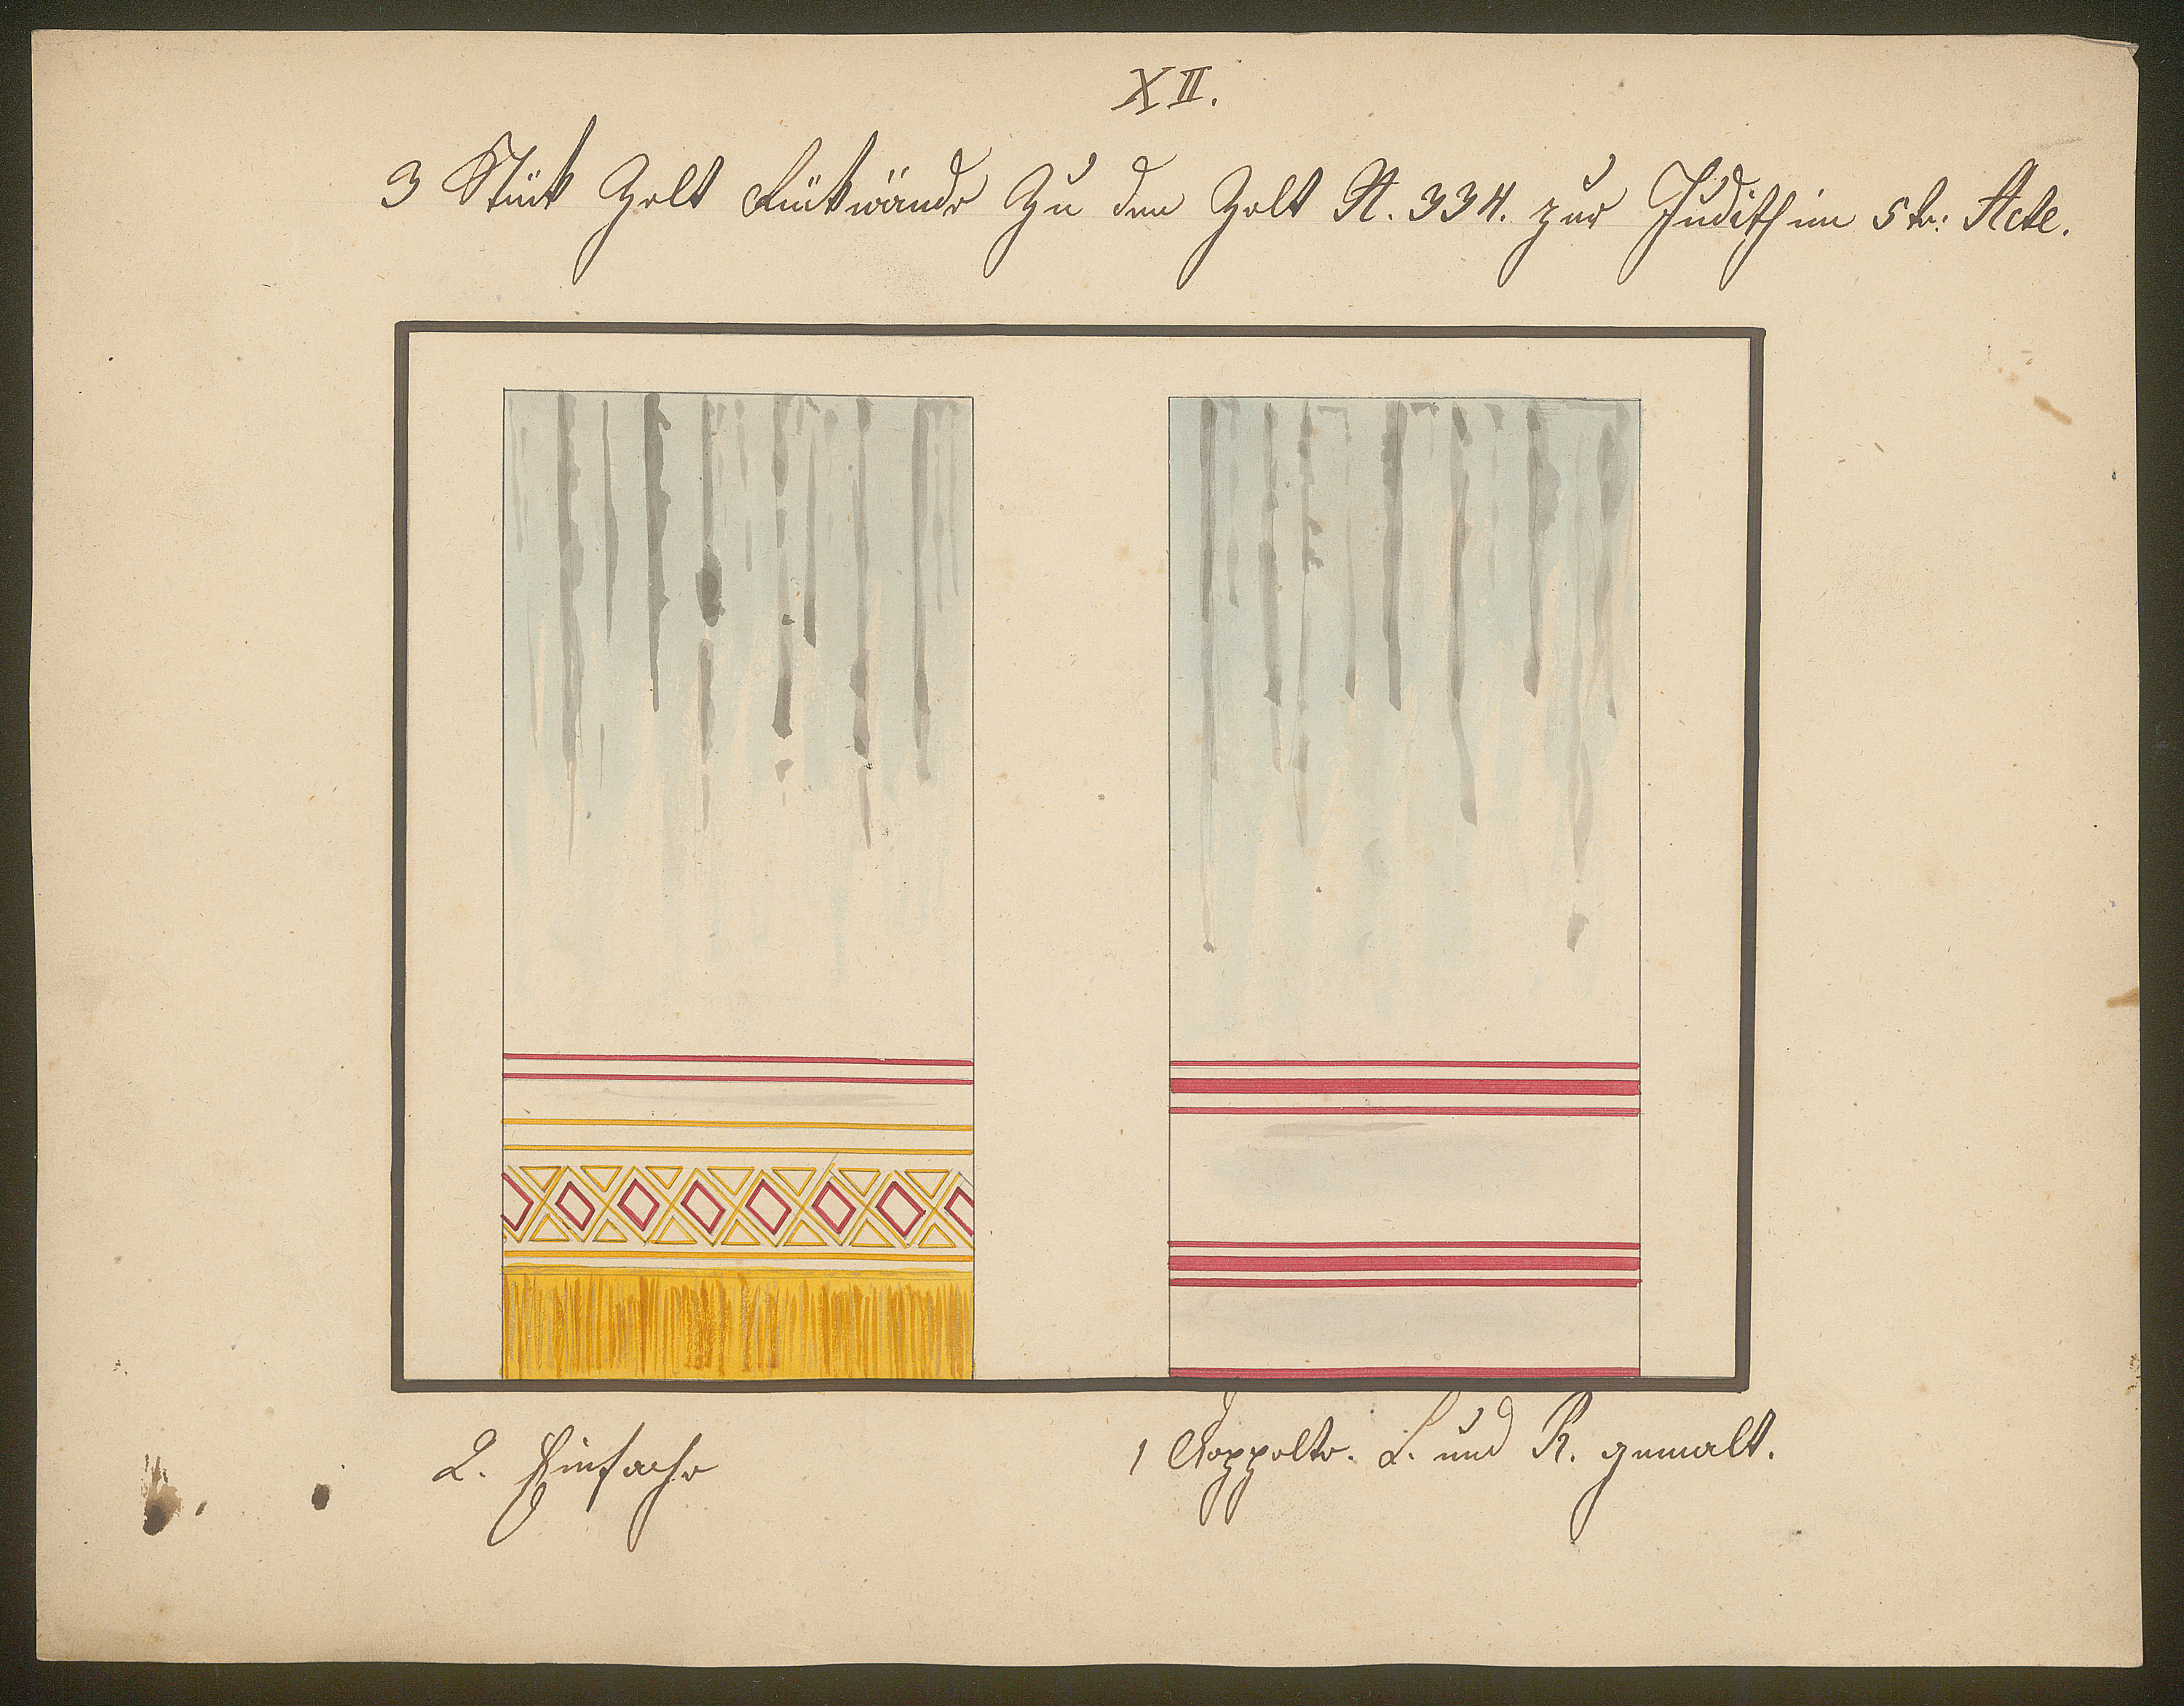 XII.
3 Stük Zelt Rükwände Zu den Zelt N. 334. zur Judith im 5te: Acte.
2. Einfache
1 Doppelte. L. und R. gemalt.